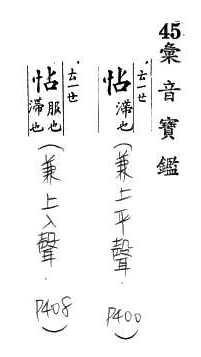 45彙音寶鑑
怗 ㄊㄧㄝ
滯也
(兼上平聲. P400)
怗 ㄊㄧㄝ
服也
滯也
(兼上入聲. P408)